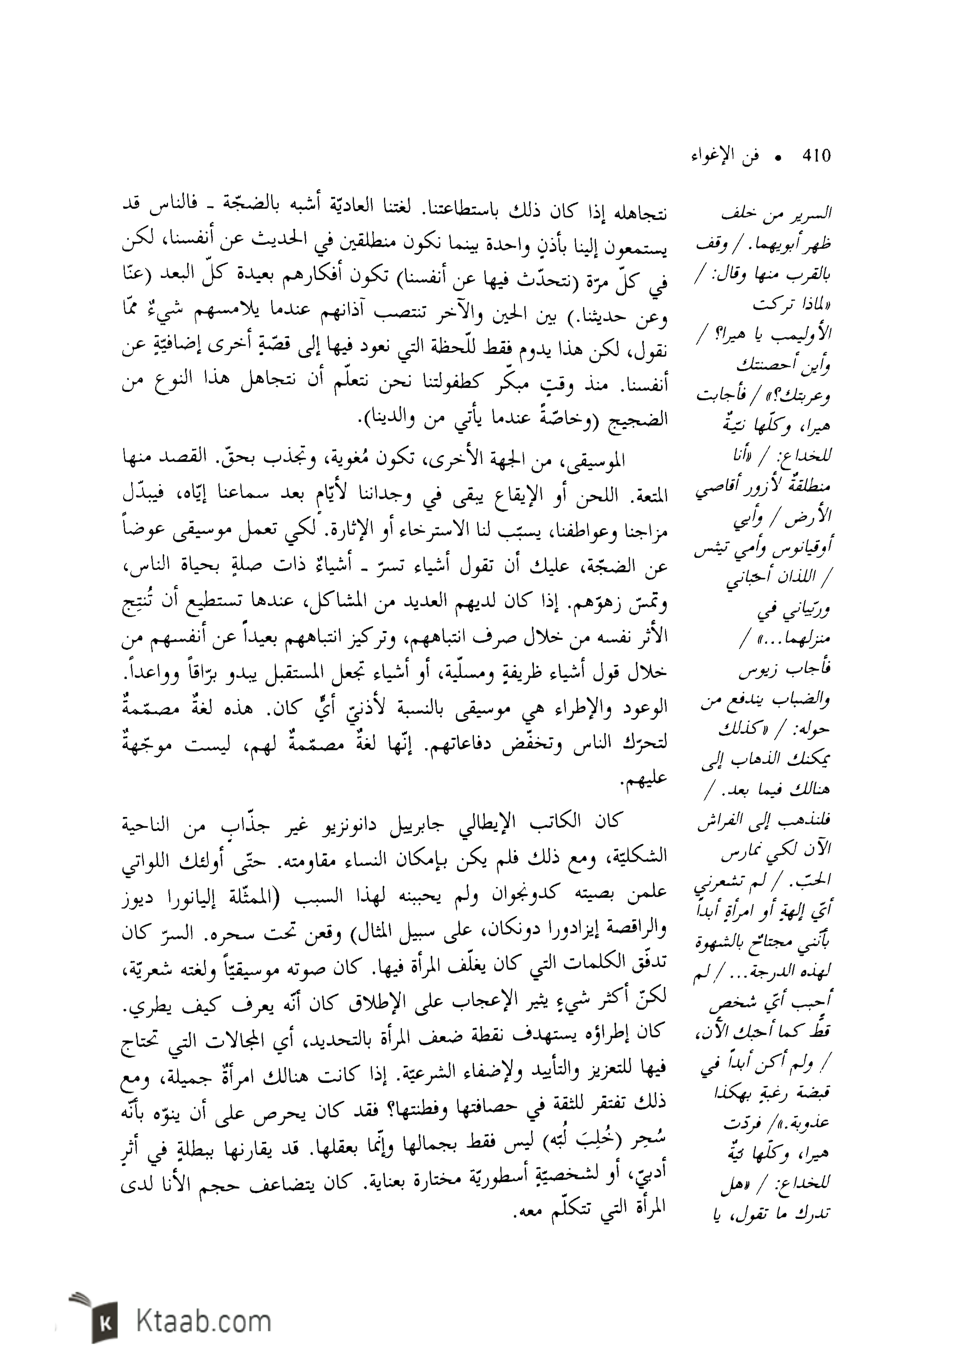 410 • فن الإغواء
نتجاهله إذا كان ذلك باستطاعتنا. لغتنا العاديّة أشبه بالضجّة ـ فالناس قد
يستمعون إلينا بأذنٍ واحدة بينما نكون منطلقين في الحديث عن أنفسنا، لكن
في كلّ مرّة (نتحدّث فيها عن أنفسنا) تكون أفكارهم بعيدة كلّ البعد (عنّا
وعن حديثنا.) بين الحين والآخر تنتصب آذانهم عندما يلامسهم شيءٌ ممّا
نقول، لكن هذا يدوم فقط للّحظة التي نعود فيها إلى قصّةٍ أخرى إضافيّةٍ عن
أنفسنا. منذ وقتٍ مبكّر كطفولتنا نحن نتعلّم أن نتجاهل هذا النوع من
الضجيج (وخاصّةً عندما يأتي من والدينا).
الموسيقى، من الجهة الأخرى، تكون مُغوية، وتجذب بحقّ. القصد منها
المتعة. اللحن أو الإيقاع يبقى في وجداننا لأيّامٍ بعد سماعنا إيّاه، فيبدّل
مزاجنا وعواطفنا، يسبّب لنا الاسترخاء أو الإثارة. لكي تعمل موسيقى عوضاً
عن الضجّة، عليك أن تقول أشياء تسرّ ـ أشياءٌ ذات صلةٍ بحياة الناس،
وتمسّ زهوّهم. إذا كان لديهم العديد من المشاكل، عندها تستطيع أن تُنتِج
الأثر نفسه من خلال صرف انتباههم، وتركيز انتباههم بعيداً عن أنفسهم من
خلال قول أشياء ظريفةٍ ومسلّية، أو أشياء تجعل المستقبل يبدو برّاقاً وواعداً.
الوعود والإطراء هي موسيقى بالنسبة لأذنيّ أيٍّ كان. هذه لغةٌ مصمّمةٌ
لتحرّك الناس وتخفّض دفاعاتهم. إنّها لغةٌ مصمّمةٌ لهم، ليست موجّهةٌ
عليهم.
كان الكاتب الإيطالي جابرييل دانونزيو غير جذّابٍ من الناحية
الشكليّة، ومع ذلك فلم يكن بإمكان النساء مقاومته. حتّى أولئك اللواتي
علمن بصيته كدونجوان ولم يحببنه لهذا السبب (الممثّلة إليانورا ديوز
والراقصة إيزادورا دونكان، على سبيل المثال) وقعن تحت سحره. السرّ كان
تدفّق الكلمات التي كان يغلّف المرأة فيها. كان صوته موسيقيّاً ولغته شعريّة،
لكنّ أكثر شيءٍ يثير الإعجاب على الإطلاق كان أنّه يعرف كيف يطري.
كان إطراؤه يستهدف نقطة ضعف المرأة بالتحديد، أي المجالات التي تحتاج
فيها للتعزيز والتأييد ولإضفاء الشرعيّة. إذا كانت هنالك امرأةٌ جميلة، ومع
ذلك تفتقر للثقة في حصافتها وفطنتها؟ فقد كان يحرص على أن ينوّه بأنّه
سُحِر (خُلِبَ لُبّه) ليس فقط بجمالها وإنّما بعقلها. قد يقارنها ببطلةٍ في أثرٍ
أدبيّ، أو لشخصيّةٍ أسطوريّة مختارة بعناية. كان يتضاعف حجم الأنا لدى
المرأة التي تتكلّم معه.
السرير من خلف
ظهر أبويهما. / وقف
بالقرب منها وقال: /
«لماذا تركت
الأوليمب يا هيرا؟ /
وأين أحصنتك
وعربتك؟» / فأجابت
هيرا، وكلّها نيّةٌ
للخداع: / «أنا
منطلقةٌ لأزور أقاصي
الأرض / وأبي
أوقيانوس وأمي تيثس
/ اللذان أحبّاني
وربّياني في
منزلهما...» /
فأجاب زيوس
والضباب يندفع من
حوله: / «كذلك
يمكنك الذهاب إلى
هنالك فيما بعد. /
فلنذهب إلى الفراش
الآن لكي نمارس
الحبّ. / لم تشعرني
أيّ إلهةٍ أو امرأةٍ أبداً
بأنّني مجتاحٌ بالشهوة
لهذه الدرجة... / لم
أحبب أيّ شخص
قطّ كما أحبك الآن،
/ ولم أكن أبداً في
قبضة رغبةٍ بهكذا
عذوبة.»/ فردّت
هيرا، وكلّها نيّةٌ
للخداع: / «هل
تدرك ما تقول، يا
Ktaab.com